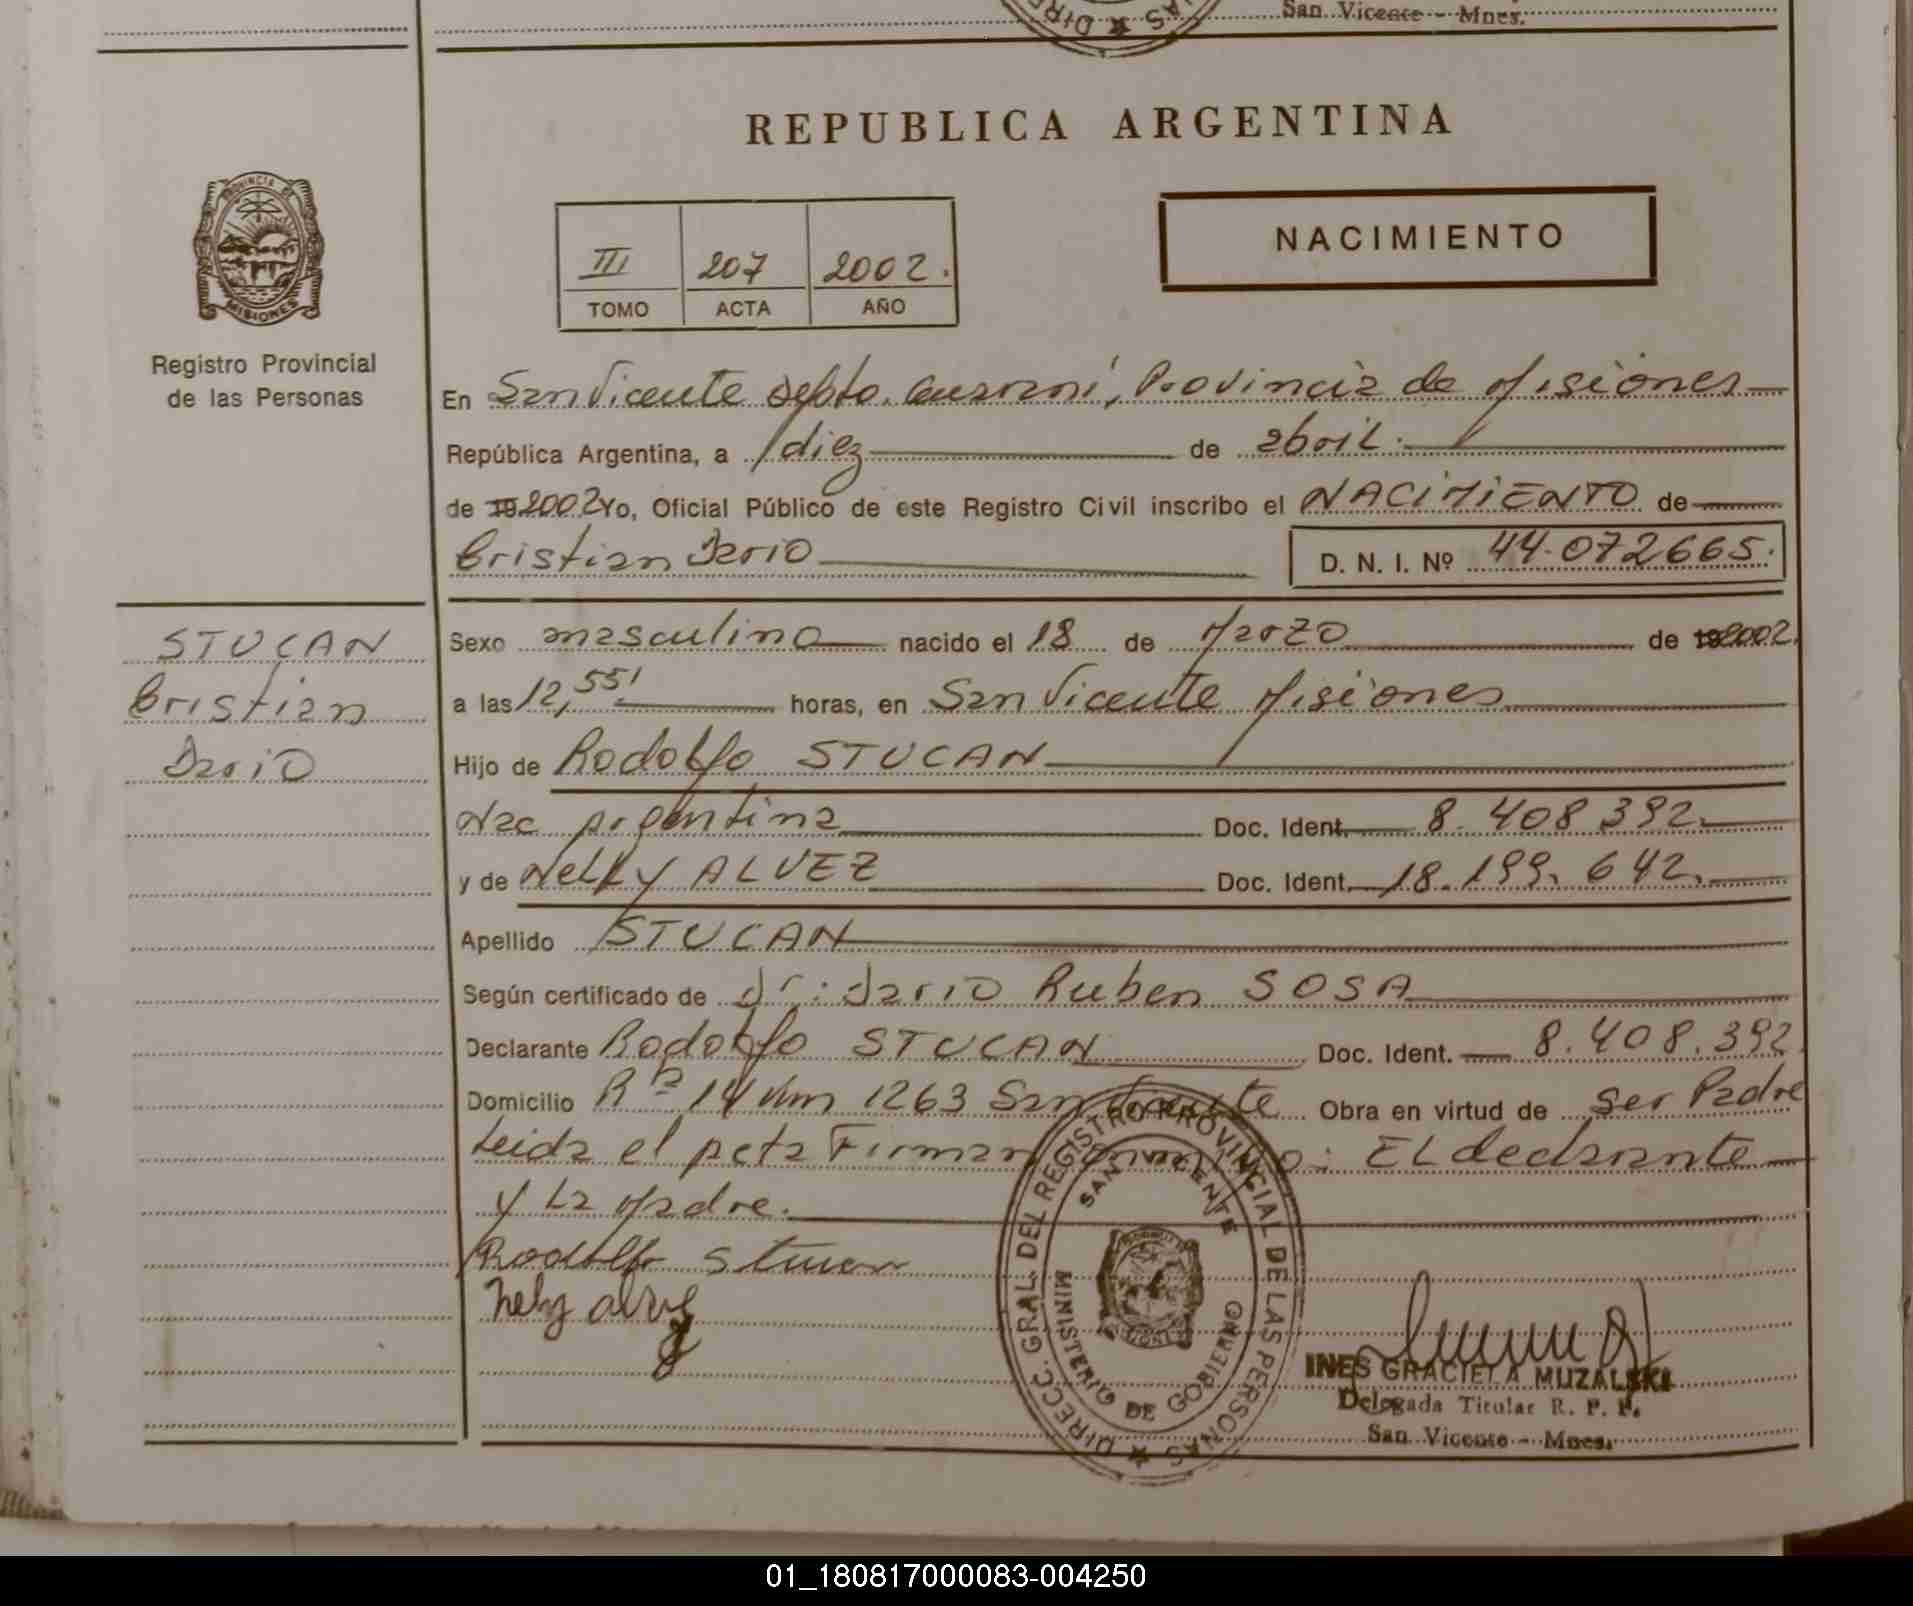 San Vicente - Mnes.
REPUBLICA ARGENTINA
PROVINCIA DE
MISIONES
Registro Provincial
de las Personas
III 207 2002.
TOMO ACTA AÑO
NACIMIENTO
En San Vicente depto. Guarani, Provincia de Misiones
República Argentina, a diez de abril.
de 19 2002 Yo, Oficial Público de este Registro Civil inscribo el NACIMIENTO de
Cristian Dario D. N. I. Nº 44.072665.
STUCAN
Cristian
Dario
Sexo masculino nacido el 18 de Marzo de 19 2002.
a las 12,55' horas, en San Vicente Misiones
Hijo de Rodolfo STUCAN
Nac Argentina Doc. Ident. 8.408.392.
y de Nelly ALVEZ Doc. Ident. 18.199.642.
Apellido STUCAN
Según certificado de dr: Dario Ruben SOSA
Declarante Rodolfo STUCAN Doc. Ident. 8.408.392.
Domicilio Rª 14 Km 1263 San Vicente Obra en virtud de ser Padre
Leida el acta Firman conmigo: EL declarante
y La Madre.
Rodolfo Stucan
Nely alvez
DIRECC. GRAL. DEL REGISTRO PROVINCIAL DE LAS PERSONAS
SAN VICENTE
MINISTERIO DE GOBIERNO
INES GRACIELA MUZALSKI
Delegada Titular R. P. P.
San Vicente - Mnes.
01_180817000083-004250